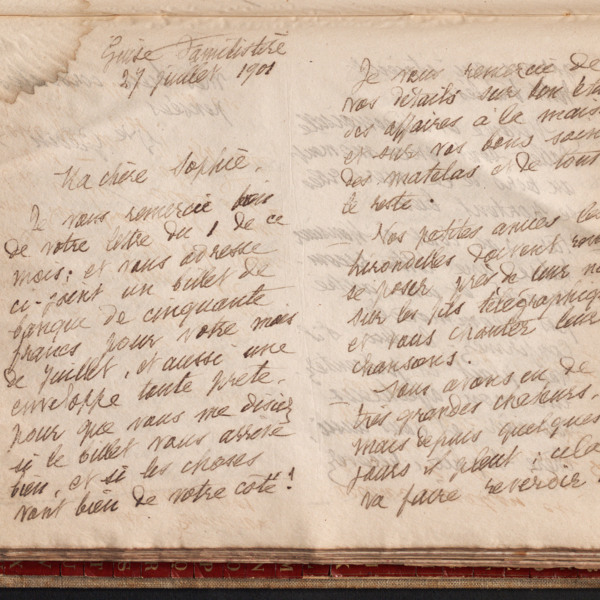 Guise Familistère
27 juillet 1901
Ma chère Sophie,
Je vous remercie bien
de votre lettre du 1 de ce
mois; et vous adresse
ci-joint un billet de
banque de cinquante
francs pour votre mois
de juillet, et aussi une
enveloppe toute prête,
pour que vous me disiez
si le billet vous arrive
bien, et si les choses
vont bien de votre côté!
Je vous remercie de
vos détails sur bon état
des affaires à la mais
et sur vos bons soins
des matelas et de tout
le reste.
Nos petites amies les
hirondelles doivent
se poser près de leur n
sur les fils télégraphiq
et vous chanter leur
chansons.
Nous avons eu de
très grandes chaleurs,
mais depuis quelques
jours il pleut; cela
va faire reverdir